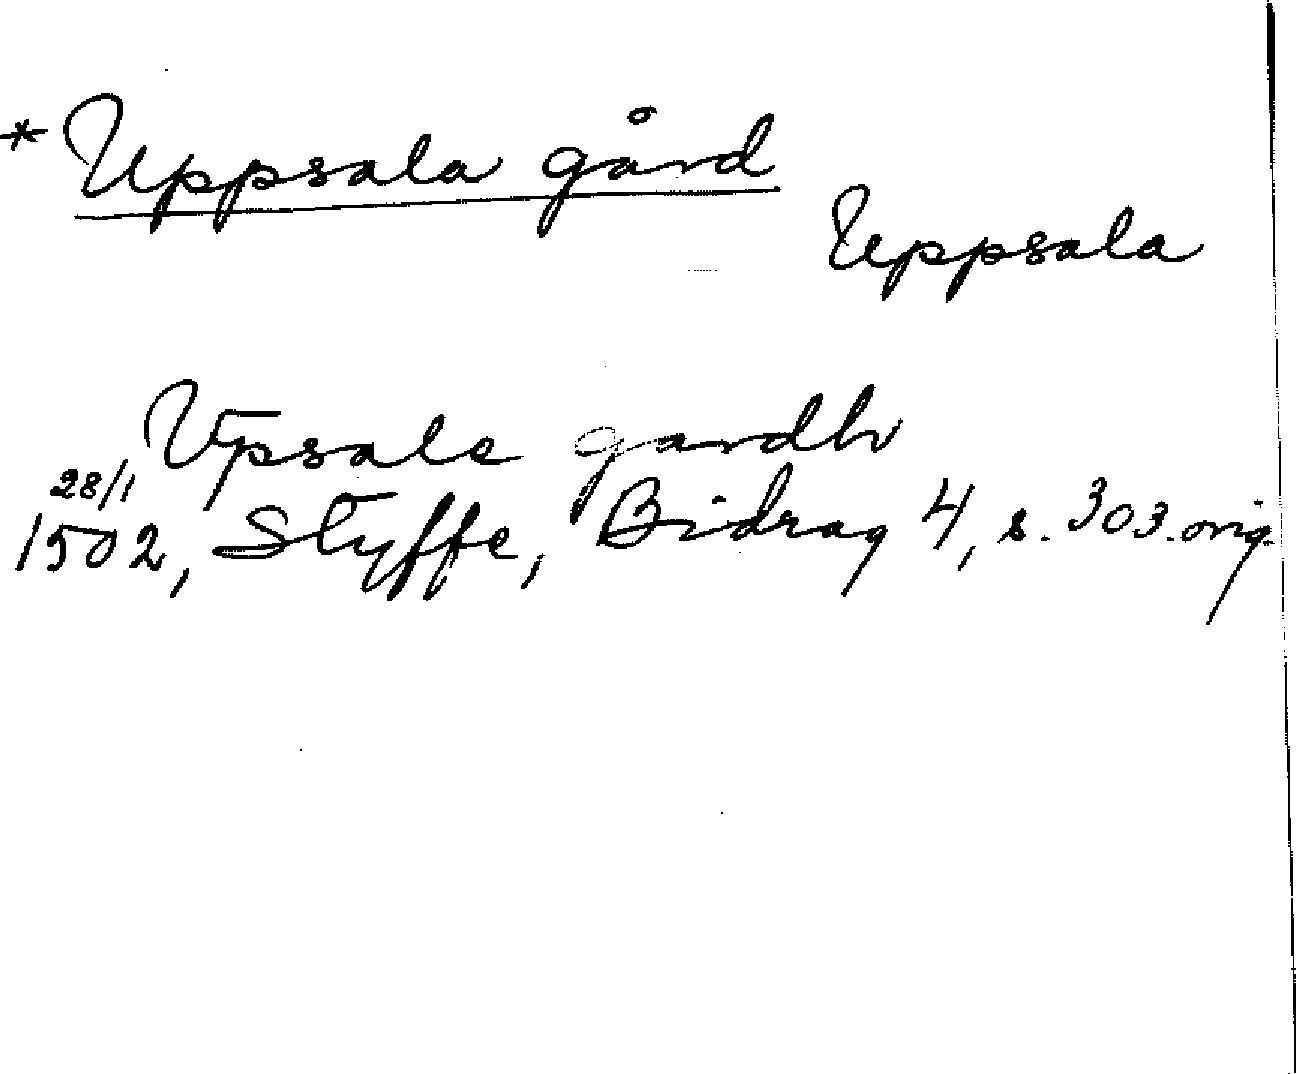 * Uppsala gård
Uppsala
Upsale gardh
28/1
1502, Styffe, Bidrag 4, s. 303. orig.